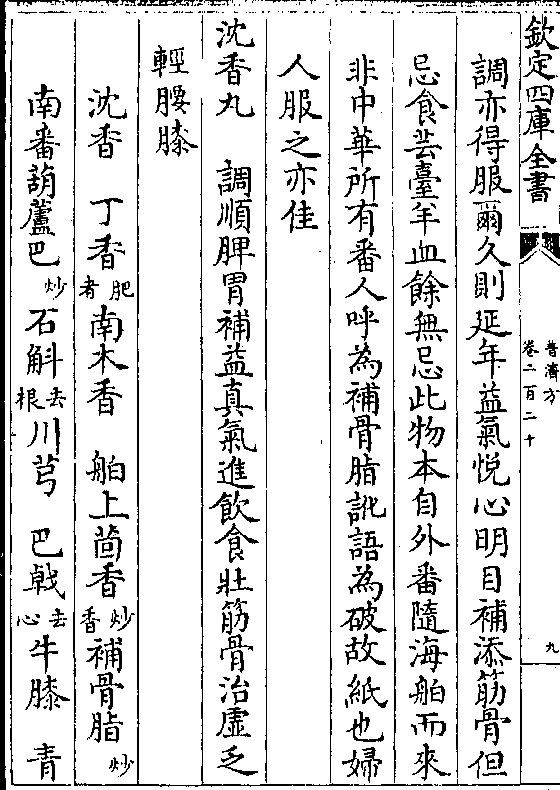 欽定四庫全書
普濟方
卷二百二十
九
調亦得服爾久則延年益氣悅心明目補添筋骨但
忌食芸臺羊血餘無忌此物本自外番隨海舶而來
非中華所有番人呼為補骨脂訛語為破故紙也婦
人服之亦佳
沈香丸 調順脾胃補益真氣進飲食壯筋骨治虛乏
輕腰膝
沈香 丁香肥者 南木香 舶上茴香炒香 補骨脂炒
南番葫蘆巴炒 石斛去根 川芎 巴戟去心 牛膝 青